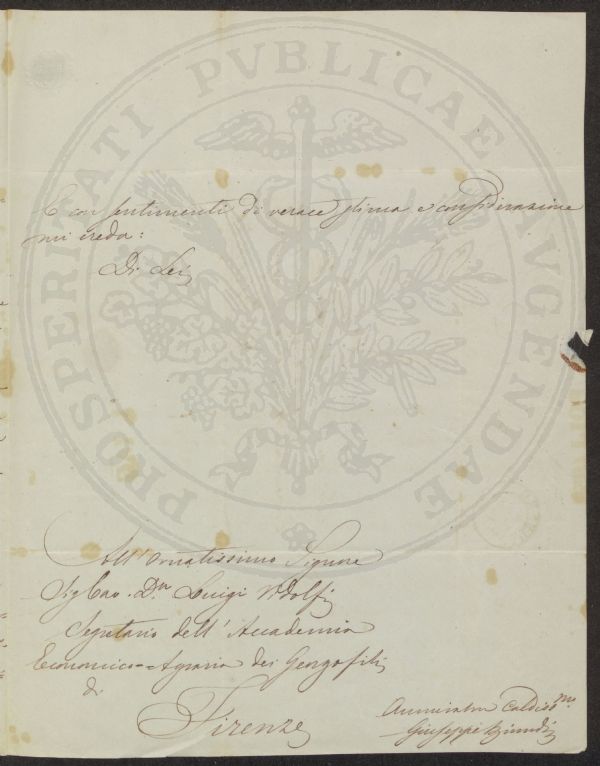 PROSPERITATI PVBLICAE AVGENDAE
E con sentimenti di verace stima e considerazione
mi creda:
Di Lei
All'Ornatissimo Signore
Sig Cav. Dn Luigi Ridolfi
Segretario dell'Accademia
Economico=Agraria dei Georgofili
di
Firenze
Ammirator Caldissmo
Giuseppe